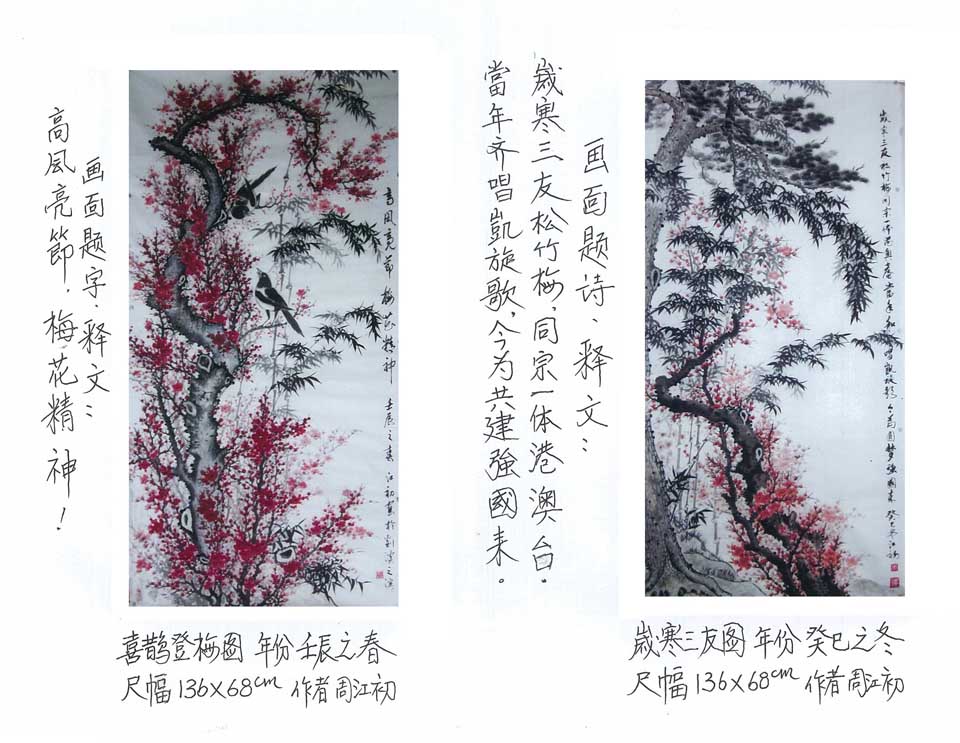 画面题字.释文:
高风亮節.梅花精神!
高風亮節 梅花精神 壬辰之春 江初寫於剡溪之濱
喜鹊登梅图 年份壬辰之春
尺幅136×68cm 作者周江初
画面题诗、释文:
嵗寒三友松竹梅,同宗一体港澳台.
當年齐唱凱旋歌,今为共建強國来。
歲寒三友松竹梅同宗一体港 當年 唱凱旋歌 圓梦強國来 癸巳冬江初
嵗寒三友图 年份癸巳之冬
尺幅136×68cm 作者周江初